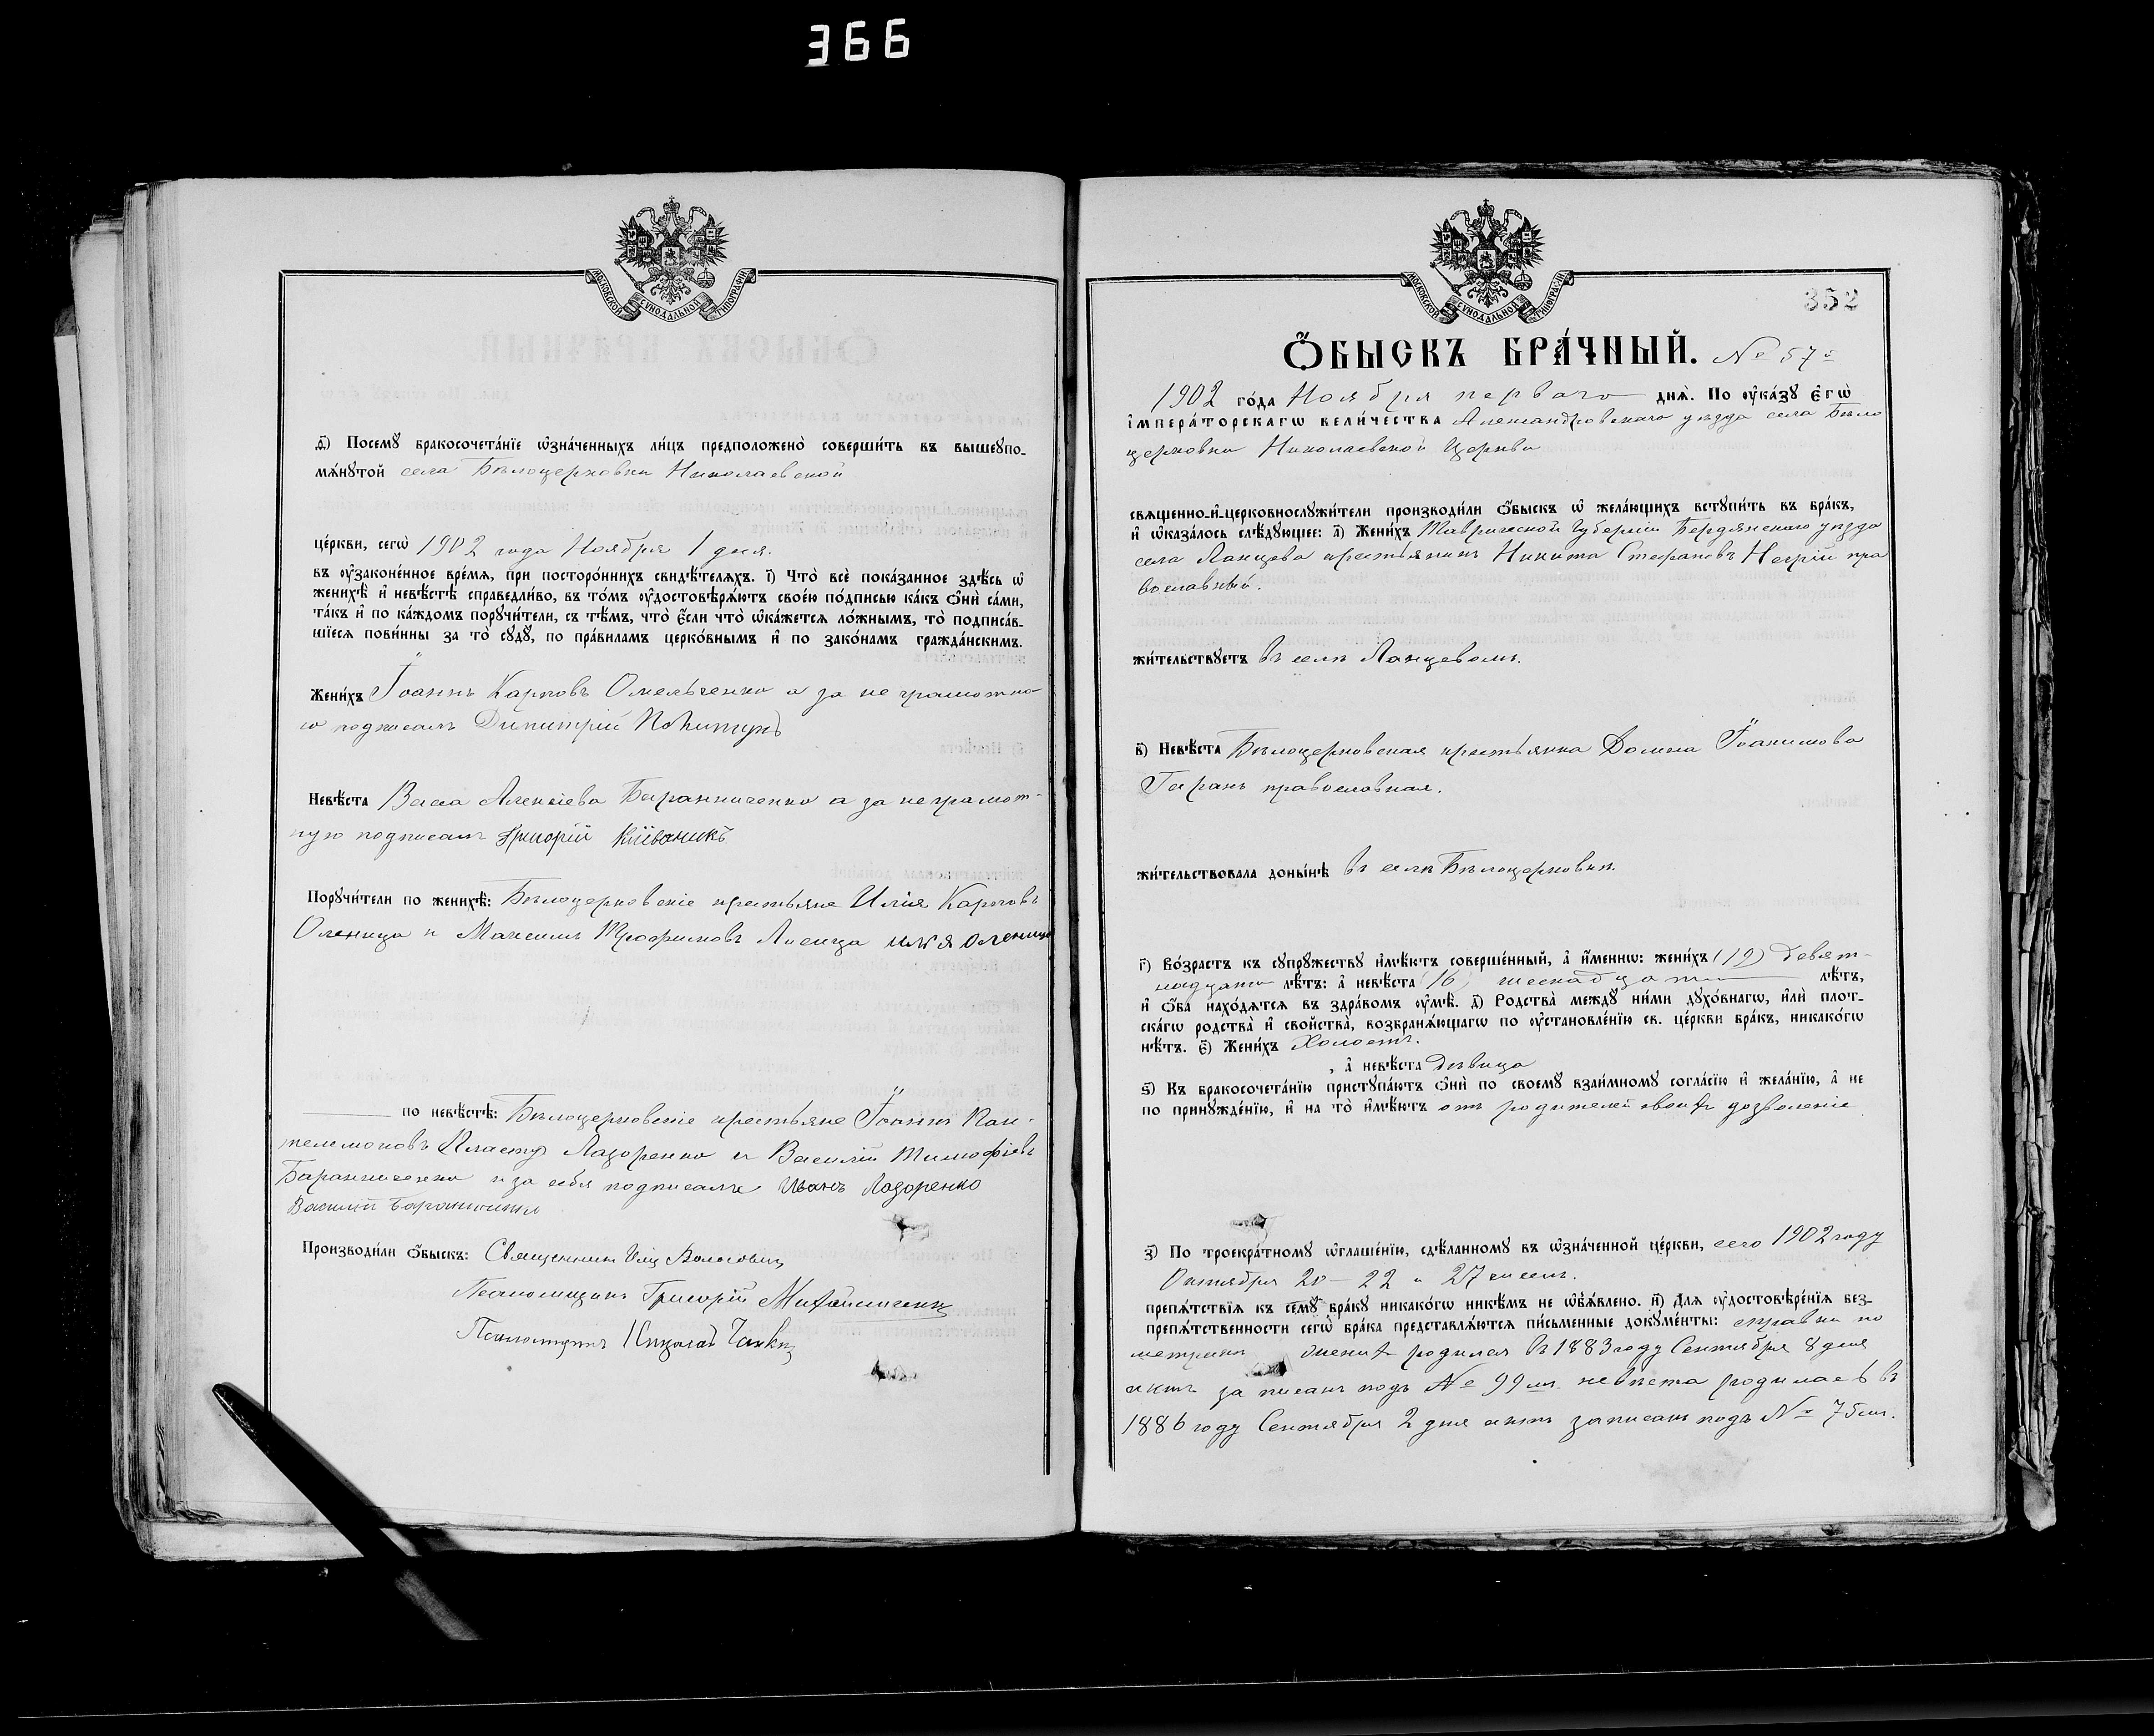 366
МОСКОВСКОЙ СѴНОДАЛЬНОЙ ТИПОГРАФІИ
д҃) Посемꙋ бракосочета́нїе ѡ҆зна́ченныхъ ли́цъ предположено̀ соверши́ть въ вышеꙋпо-
мѧ́нꙋтой села Бѣлоцерковки Николаевской
це́ркви, сегѡ̀ 1902 года Ноября 1 дня.
въ ᲂу҆законе́нное вре́мѧ, при посторо́ннихъ свидѣ́телѧхъ. і҃) Что̀ всѐ пока́занное здѣ́сь ѡ҆
женихѣ̀ и҆ невѣ́стѣ справедли́во, въ то́мъ ᲂу҆достовѣрѧ́ютъ свое́ю по́дписью ка́къ ѻ҆нѝ са́ми,
та́къ и҆ по ка́ждомъ порꙋчи́тели, съ тѣ́мъ, что̀ є҆́сли что̀ ѡ҆ка́жетсѧ ло́жнымъ, то̀ подписа́в-
шїесѧ пови́нны за то̀ сꙋдꙋ̀, по пра́виламъ церко́внымъ и҆ по зако́намъ гражда́нскимъ.
Жени́хъ Іоаннъ Карповъ Омельченко а за не грамотна-
го подписалъ Димитрій
Невѣ́ста Васса Алексіева Баранниченко а за неграмот-
ную подписалъ Григорій Кіiваникъ
Порꙋчи́тели по женихѣ̀: Бѣлоцерковскіе крестьяне Илія Карповъ
Оленица и Максимъ Трофимовъ Лисица Илья Оленица
по невѣ́стѣ: Бѣлоцерковскіе крестьяне Іоаннъ Пан-
телемоновъ Лазоренко и Василій Тимофіевъ
Баранниченко и за себя подписали Иванъ Лазоренко
Василій
Производи́ли ѻ҆́быскъ: Священникъ
Псаломщикъ Григорій
Псаломщикъ Николай
МОСКОВСКОЙ СѴНОДАЛЬНОЙ ТИПОГРАФІИ
352
Ѻ҆́БЫСКЪ БРА́ЧНЫЙ. № 57й
1902 го́да Ноября перваго днѧ̀. По ᲂу҆ка́зꙋ Є҆гѡ̀
І҆мпера́торскагѡ вели́чества Александровскаго уѣзда села Бѣло
церковки Николаевской Церкви
свѧщенно-и҆-церковнослꙋжи́тели производи́ли ѻ҆́быскъ ѡ҆ жела́ющихъ встꙋпи́ть въ бра́къ,
и҆ ѡ҆каза́лось слѣ́дꙋющее: а҃) Жени́хъ Таврической Губерніи Бердянскаго уѣзда
села Ланцева крестьянинъ Никита Стефановъ Негрій пра
вославный.
жи́тельствꙋетъ въ селѣ Ланцевомъ.
в҃) Невѣ́ста Бѣлоцерковская крестьянка Домна Іоакимова
Гаранъ православная.
жи́тельствовала доны́нѣ въ селѣ Бѣлоцерковкѣ.
г҃) Во́зрастъ къ сꙋпрꙋ́жествꙋ и҆мѣ́ютъ соверше́нный, а҆ и҆́меннѡ: жени́хъ (19) девят-
надцать лѣ́тъ: а҆ невѣ́ста 16) шеснадцать лѣ́тъ,
и҆ ѻ҆́ба нахо́дѧтсѧ въ здра́вомъ ᲂу҆мѣ̀. д҃) Родства̀ междꙋ̀ ни́ми дꙋхо́внагѡ, и҆лѝ плот-
ска́гѡ родства̀ и҆ свойства̀, возбранѧ́ющагѡ по ᲂу҆становле́нїю св. це́ркви бра́къ, никако́гѡ
нѣ́тъ. є҃) Жени́хъ Холостъ.
, а҆ невѣ́ста Дѣвица
ѕ҃) Къ бракосочета́нїю пристꙋпа́ютъ ѻ҆нѝ по своемꙋ̀ взаи́мномꙋ согла́сїю и҆ жела́нїю, а҆ не
по принꙋжде́нїю, и҆ на то̀ и҆мѣ́ютъ отъ родителей своихъ дозволеніе
з҃) По троекра́тномꙋ ѡ҆глаше́нїю, сдѣ́ланномꙋ въ ѡ҆зна́ченной це́ркви, сего 1902 году
Октября 20 - 22 и 27 чиселъ.
препѧ́тствїѧ къ семꙋ̀ бра́кꙋ никако́гѡ никѣ́мъ не ѡ҆б̾ѧ́влено. и҃) Длѧ ᲂу҆достовѣре́нїѧ без-
препѧ́тственности сегѡ̀ бра́ка представлѧ́ютсѧ пи́сьменные докꙋме́нты: справки по
метрикѣ женихъ родился въ 1883 году Сентября 8 дня
актъ записанъ подъ № 99 мъ. невѣста родилась въ
1886 году Сентября 2 дня актъ записанъ подъ № 75 мъ.